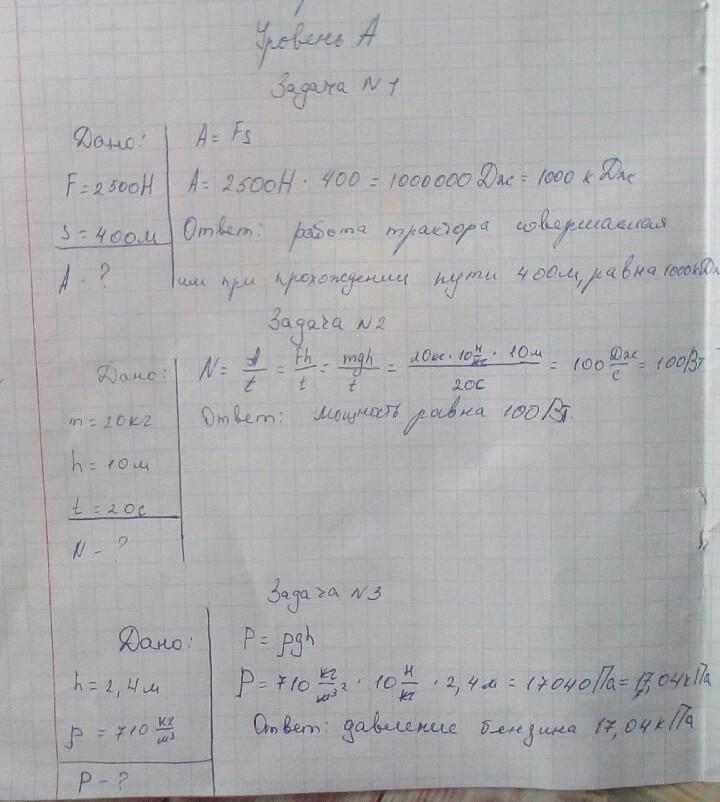 Уровень А
Задача N1
Дано:
F = 2500Н
S = 400м
A - ?
A = Fs
A = 2500Н · 400 = 1000000 Дж = 1000 кДж
Ответ: работа трактора совершаемая
им при прохождении пути 400м, равна 1000кДж
Задача N2
Дано:
m = 20кг
h = 10м
t = 20с
N - ?
N = A/t = Fh/t = mgh/t = 20кг · 10 Н/кг · 10м / 20с = 100 Дж/с = 100Вт
Ответ: мощность равна 100Вт.
Задача N3
Дано:
h = 2,4м
ρ = 710 кг/м³
P - ?
P = ρgh
P = 710 кг/м³ · 10 Н/кг · 2,4м = 17040Па = 17,04кПа
Ответ: давление бензина 17,04кПа